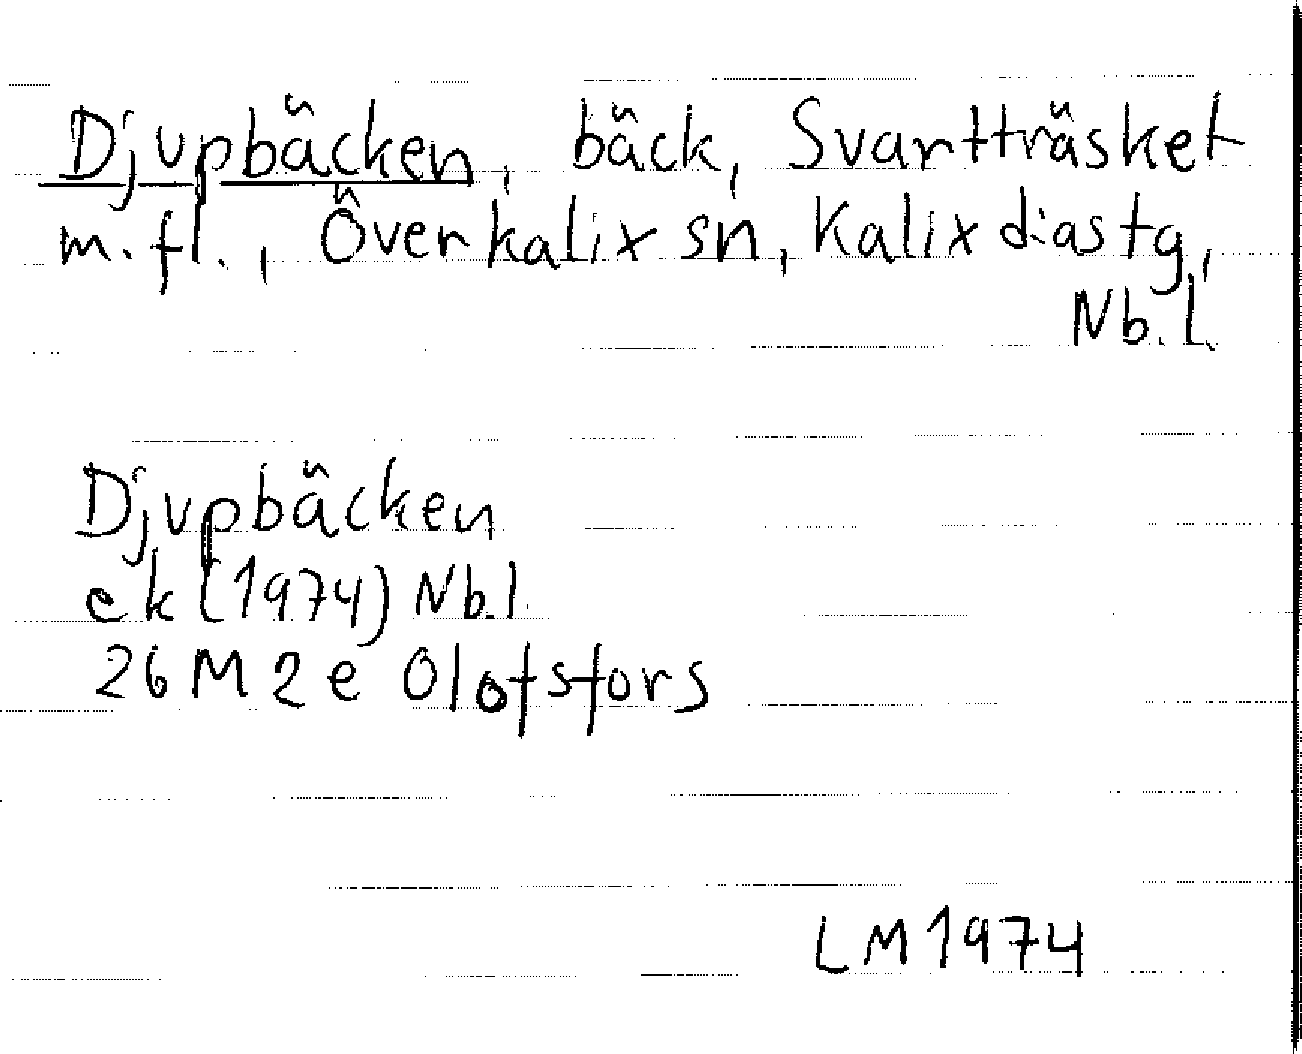 Djupbäcken, bäck, Svartträsket
m.fl., Överkalix sn, Kalix d:astg,
Nb.l.
Djupbäcken
ek (1974) Nb.l
26 M 2 e Olofsfors
LM 1974